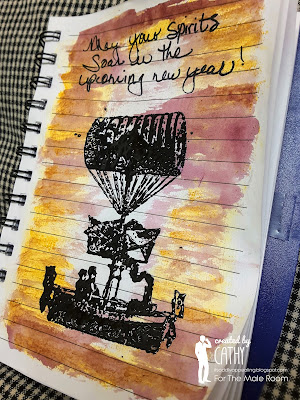 May your Spirits
Soar in the
upcoming new year!
created by
CATHY
For The Male Room